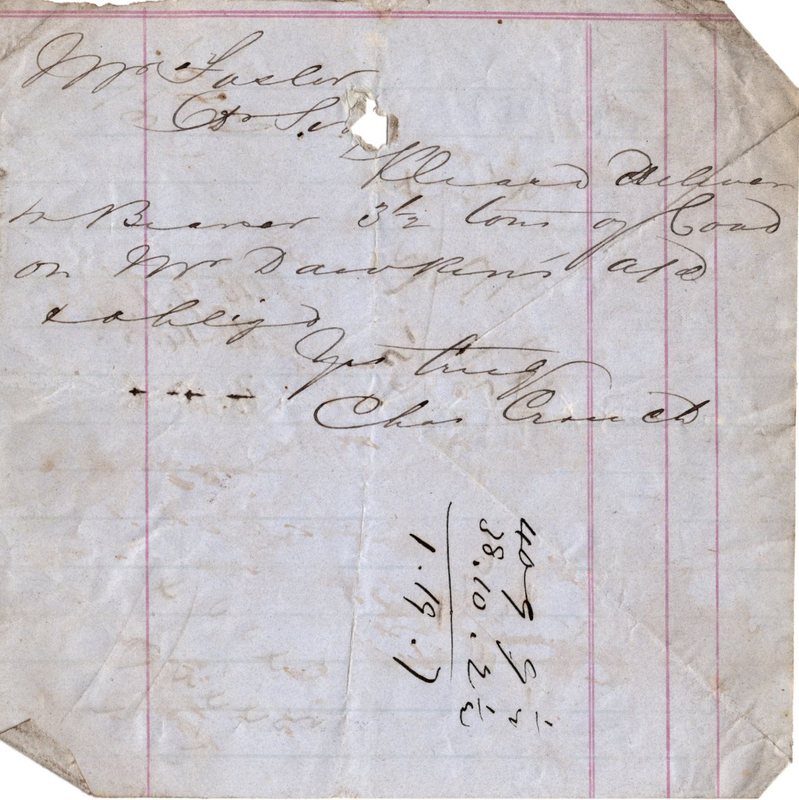 Mr Foster
Dr Sir
Please Deliver
to Bearer 3½ tons of Coal
on Mr Dawkins a/c
& oblige
Yrs truly
Chas Crouch
40 9 9½
38.10.2½
1.19.7